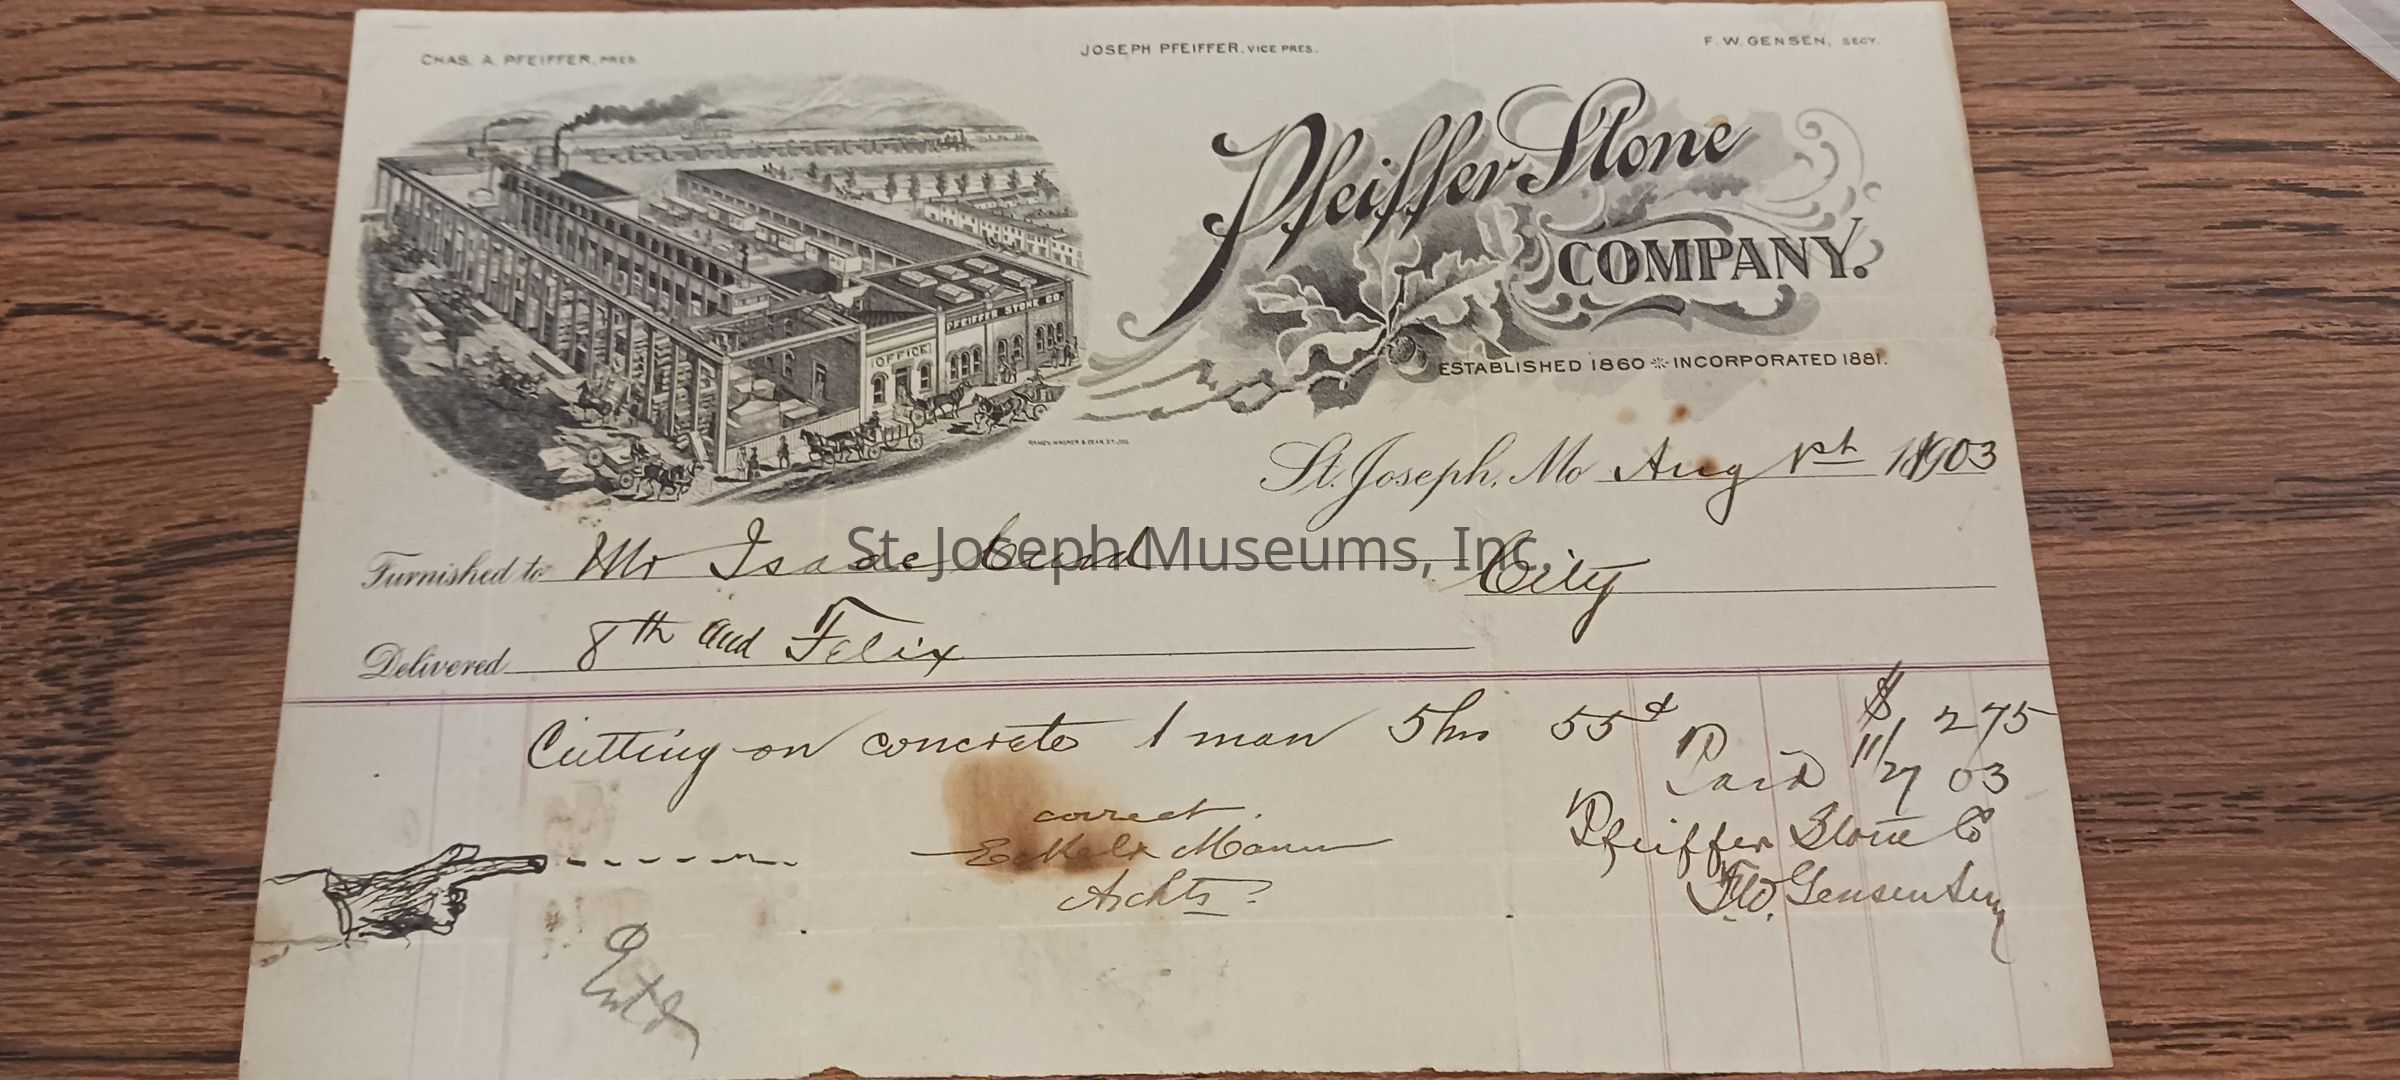 CHAS. A. PFEIFFER, PRES.
JOSEPH PFEIFFER, VICE PRES.
F. W. GENSEN, SECY.
Pfeiffer Stone
COMPANY.
PFEIFFER STONE CO.
OFFICE
ESTABLISHED 1860 INCORPORATED 1881.
RAMEY, WAGNER & DEAN, ST. JOE
St. Joseph, Mo Aug 1st 1903
St. Joseph Museums, Inc.
Furnished to Mr Isaac Curd City
Delivered 8th and Felix
Cutting on concrete 1 man 5 hrs 55¢ $ 2 75
Paid 11/27 03
correct
Eckel & Mann
Archts
Pfeiffer Stone Co
F.W. Gensen Secy